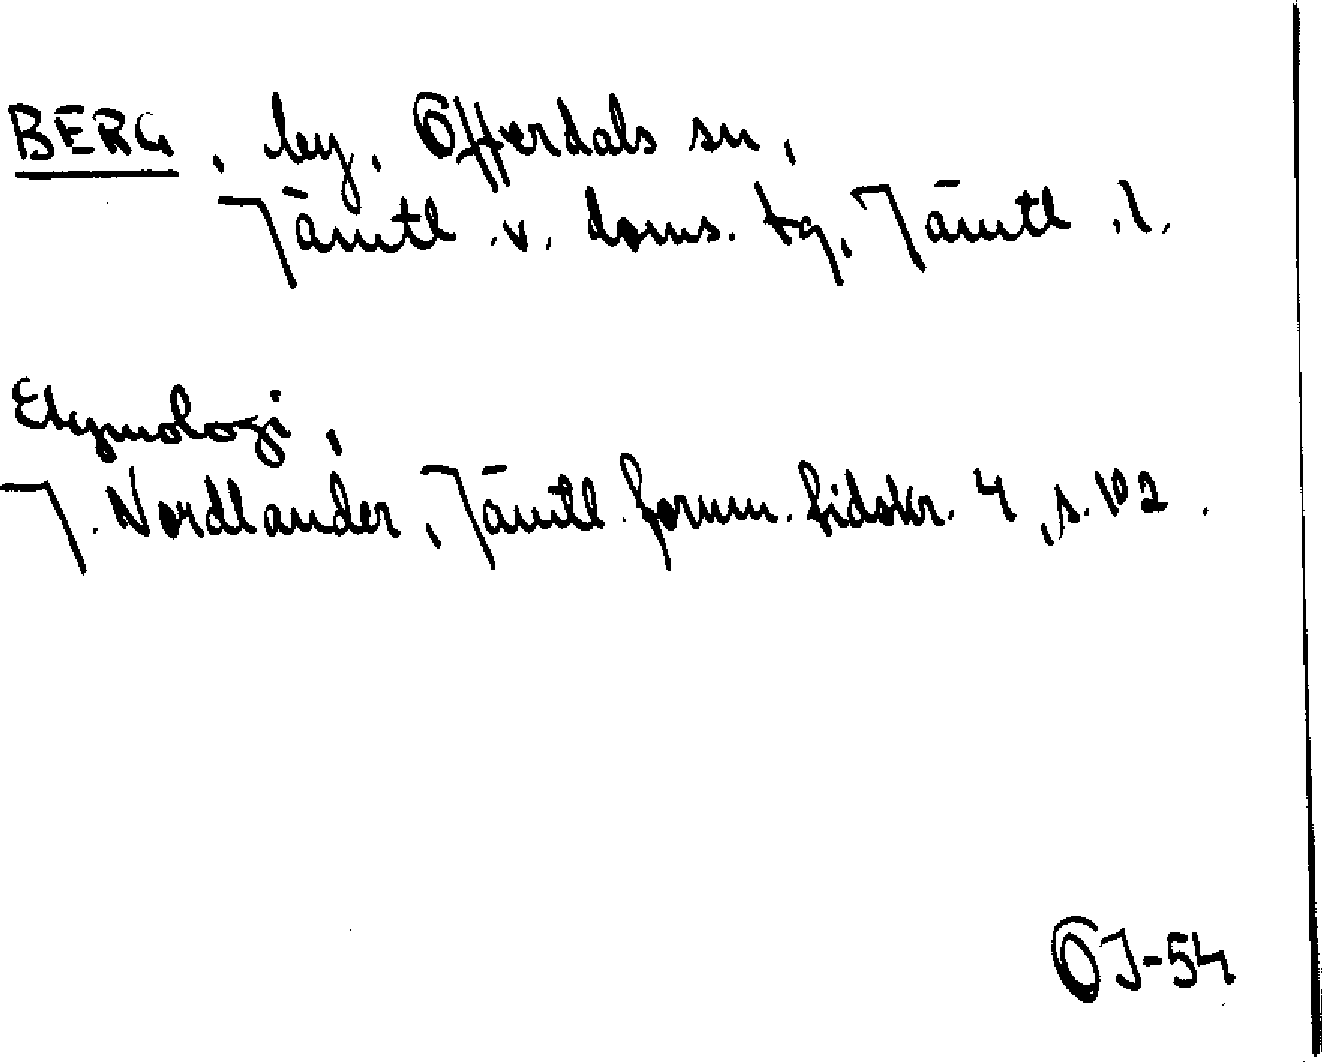 BERG, by, Offerdals sn,
Jämtl. v. doms. tg, Jämtl. l.
Etymologi,
J. Nordlander, Jämtl. fornm. tidskr. 4, s. 102.
OJ-54